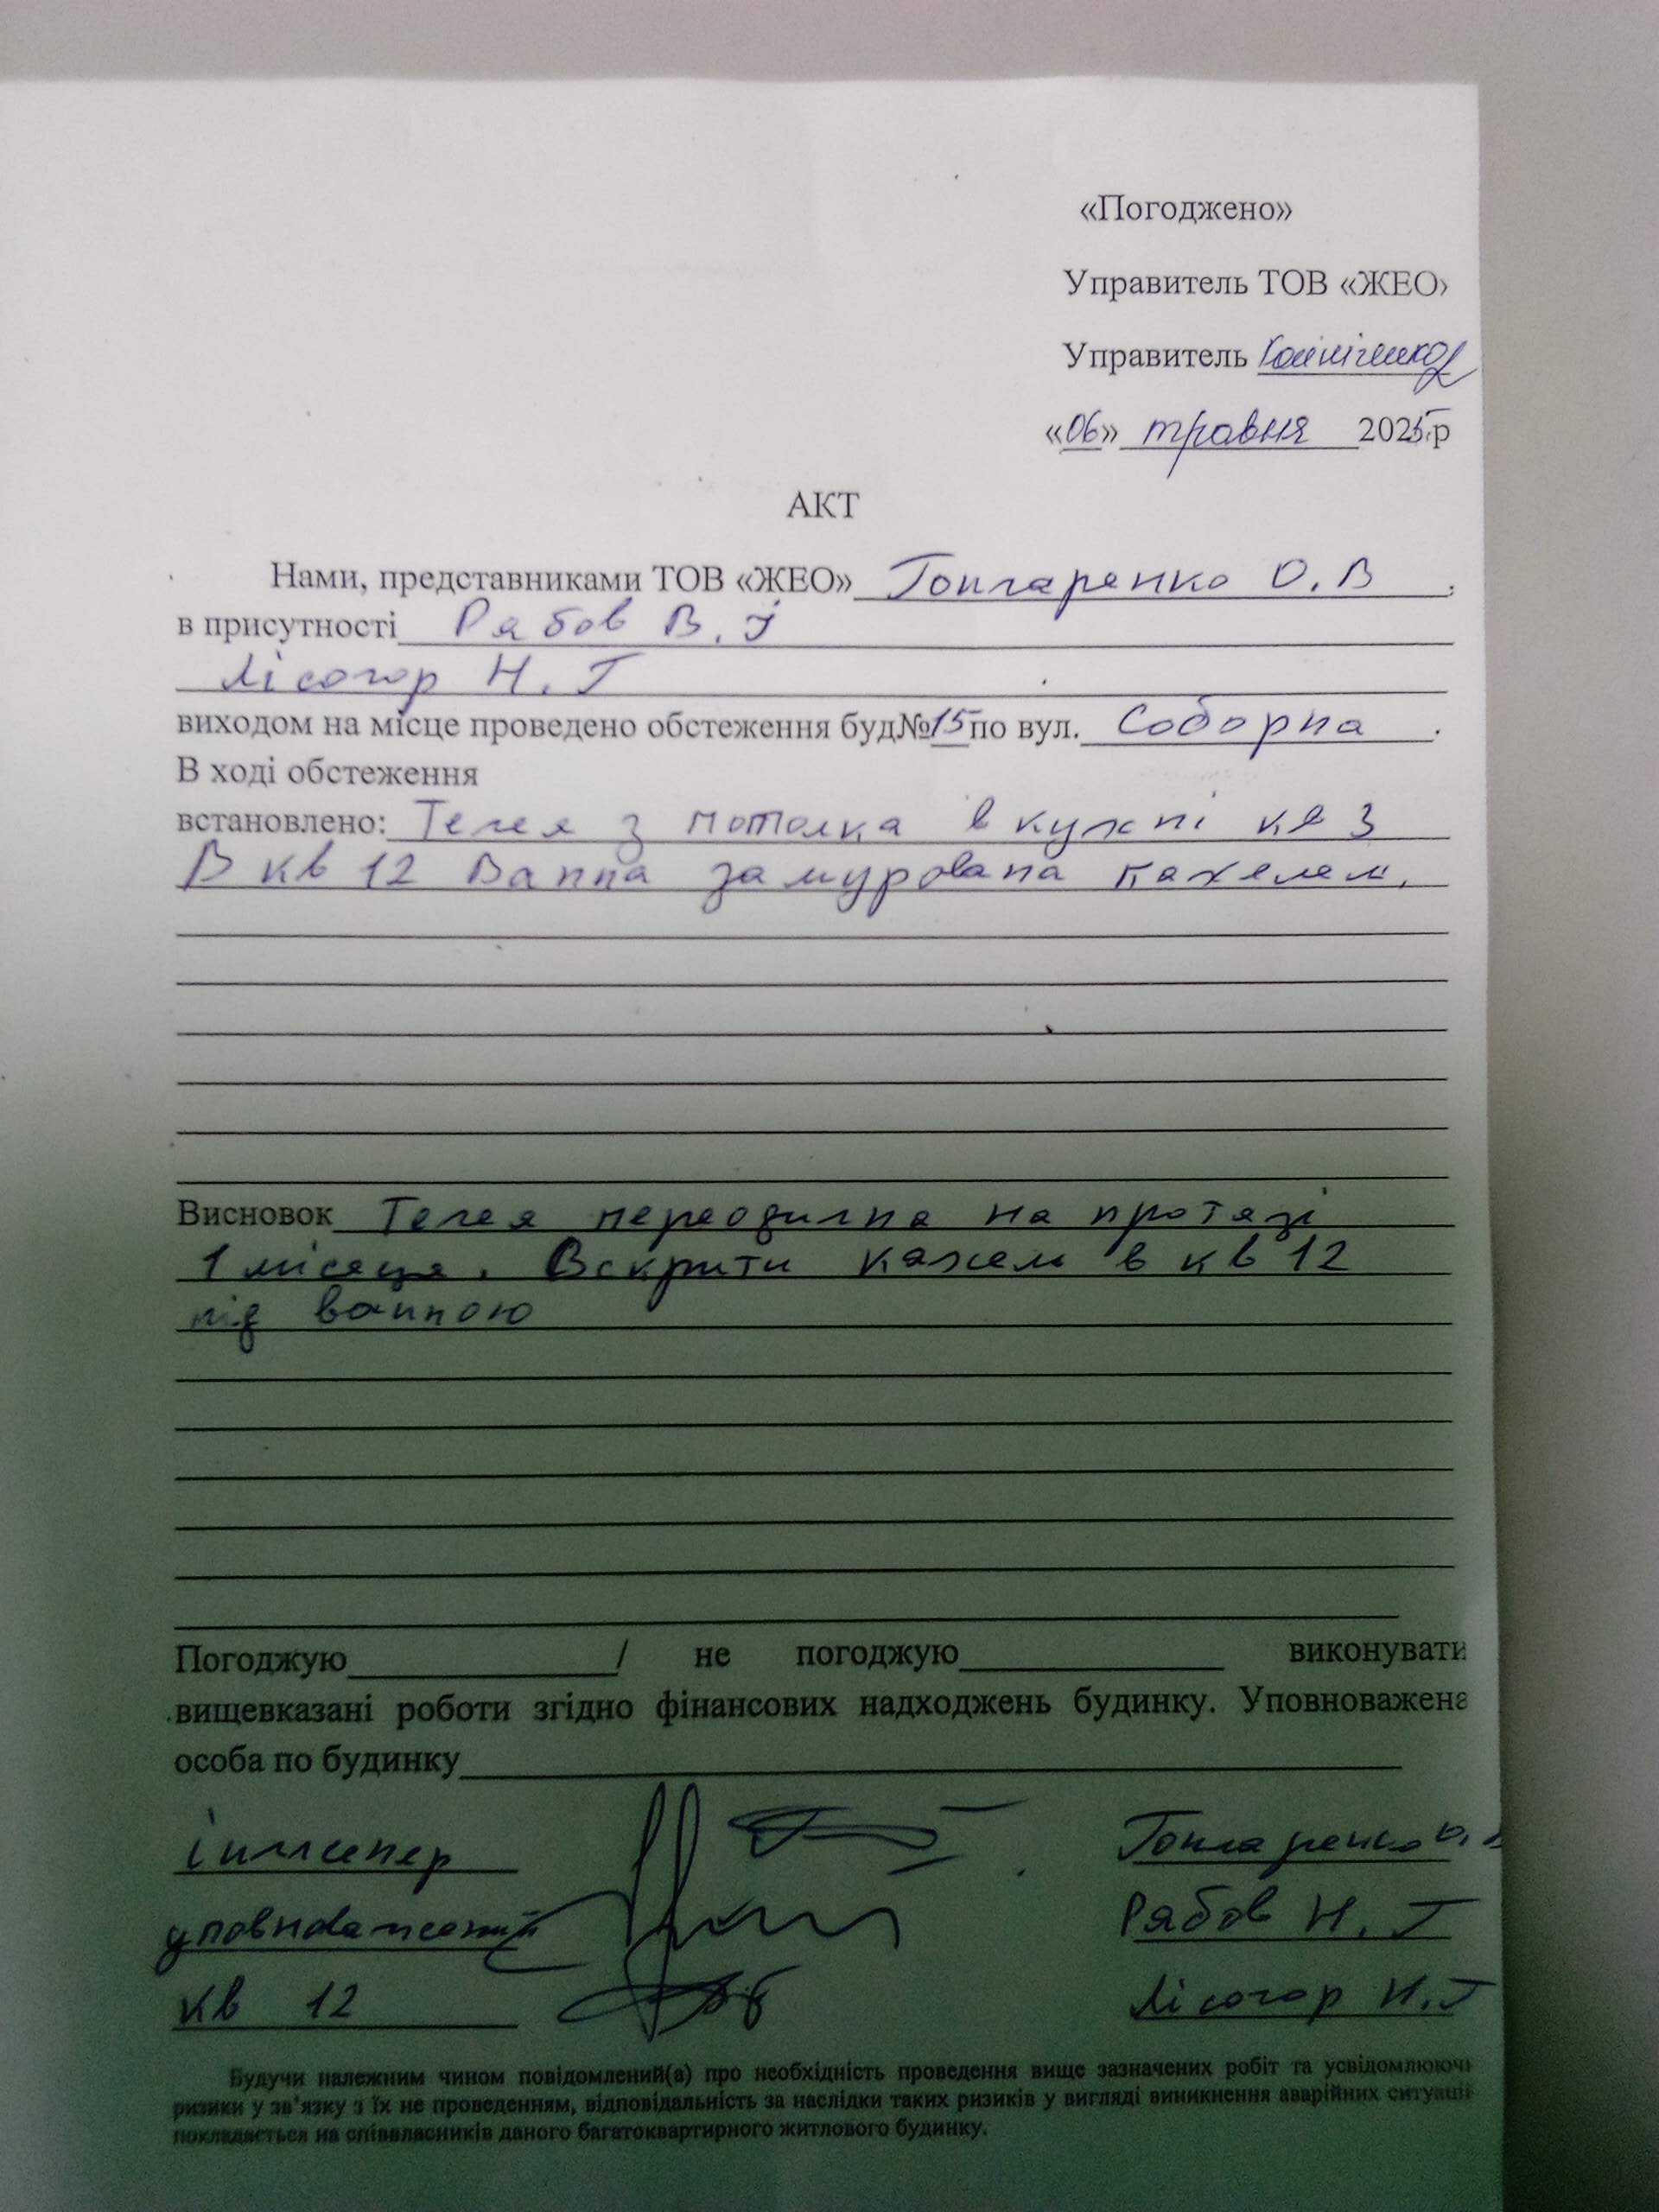 «Погоджено»
Управитель ТОВ «ЖЕО»
Управитель
«06» травня 2025р
АКТ
Нами, представниками ТОВ «ЖЕО» Гончаренко О.В
в присутності Рябов В.І
Лісогор Н.Г
виходом на місце проведено обстеження буд№15 по вул. Соборна.
В ході обстеження
встановлено: Течея з потолка в кухні кв 3
В кв 12 Ванна замурована кахелем.
Висновок Течея переодична на протязі
1 місяця. Вскрити кахель в кв 12
під ванною
Погоджую / не погоджую виконувати
вищевказані роботи згідно фінансових надходжень будинку. Уповноважена
особа по будинку
інженер Гончаренко О.В
уповноважений Рябов Н.Г
кв 12 Лісогор Н.Г
Будучи належним чином повідомлений(а) про необхідність проведення вище зазначених робіт та усвідомлюючи
ризики у зв'язку з їх не проведенням, відповідальність за наслідки таких ризиків у вигляді виникнення аварійних ситуацій
покладається на співвласників даного багатоквартирного житлового будинку.